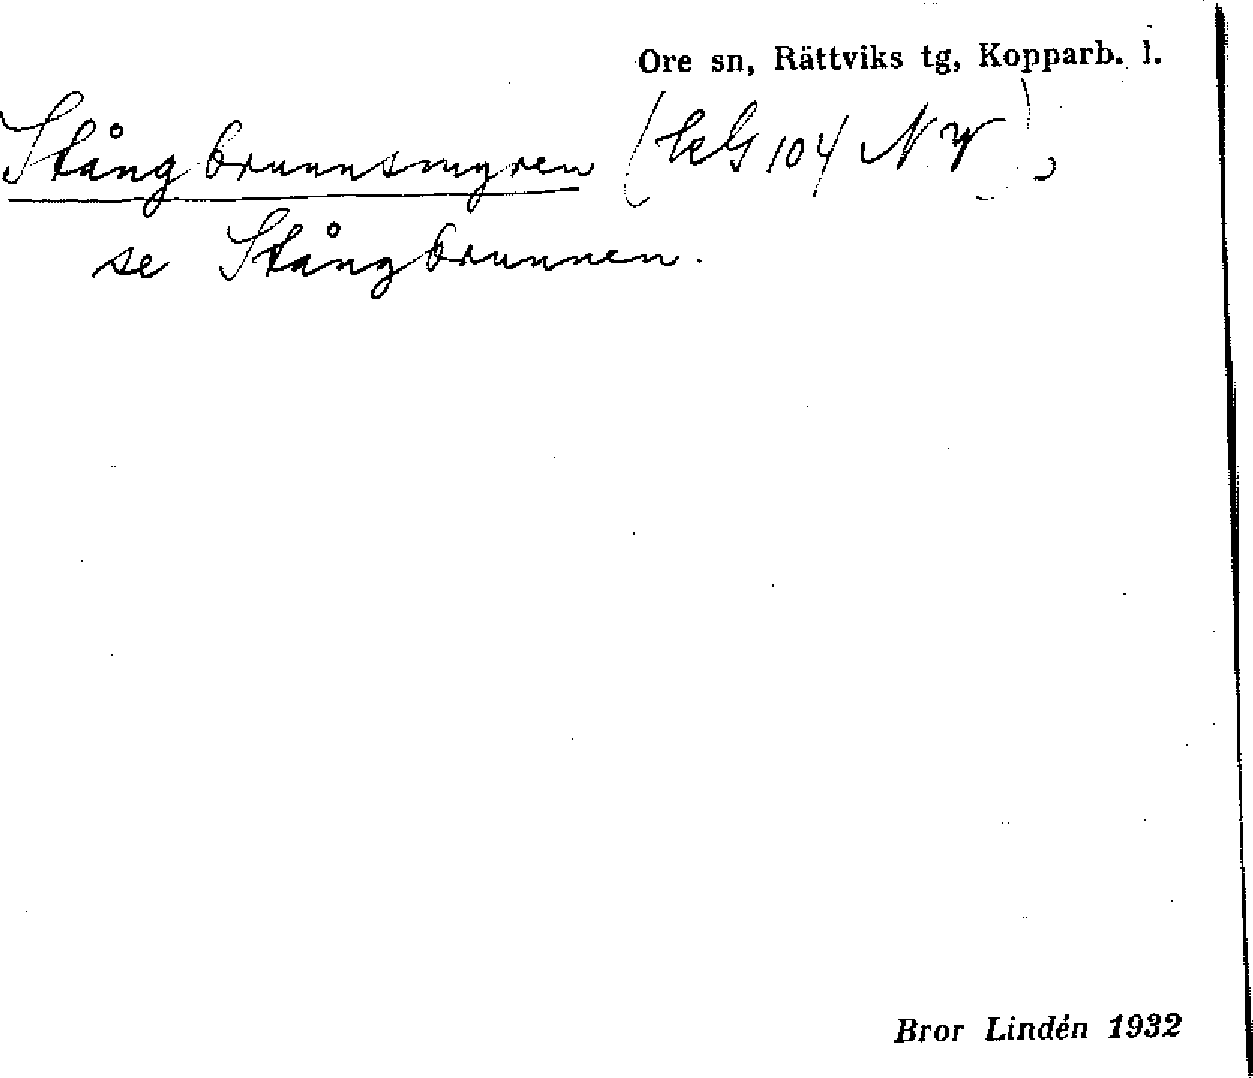 Ore sn, Rättviks tg, Kopparb. l.
Stångbrunnsmyren (kG 104 NV),
se Stångbrunnen.
Bror Lindén 1932